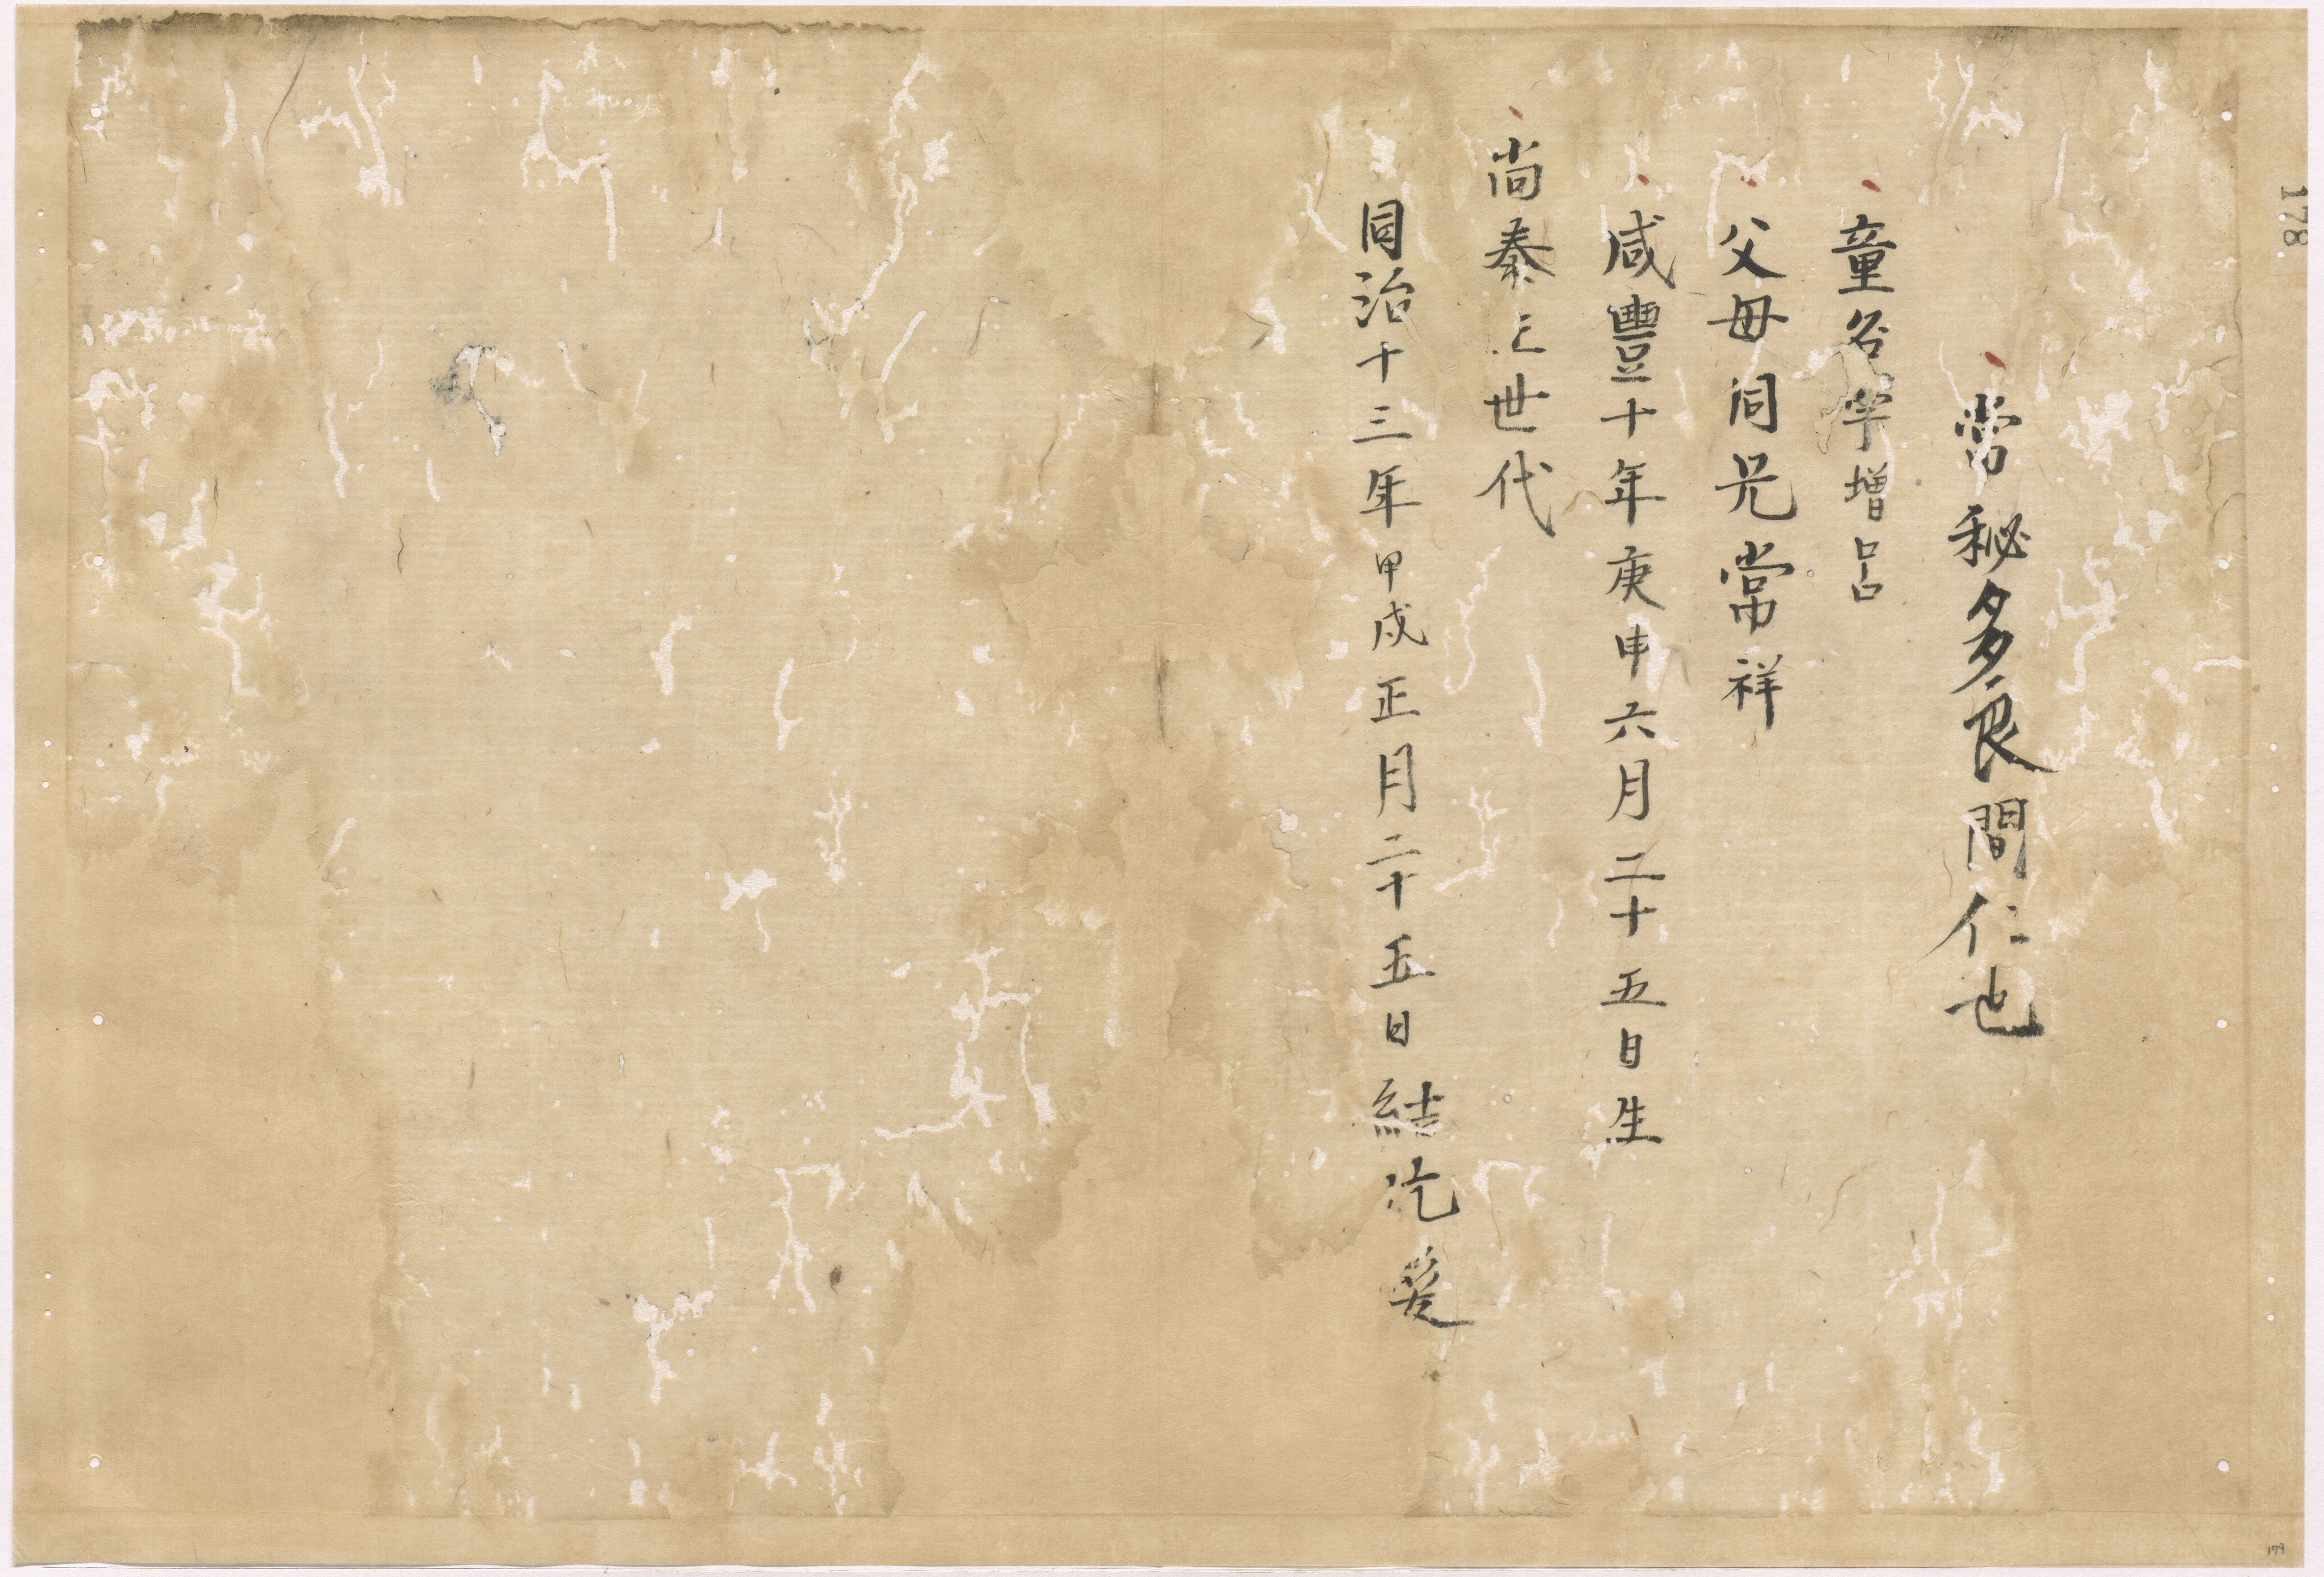 178
嘗秘多良間仁也
童名 増呂
父母同兄常祥
咸豐十年庚申六月二十五日生
尚泰王世代
同治十三年甲戌正月二十五日結
179